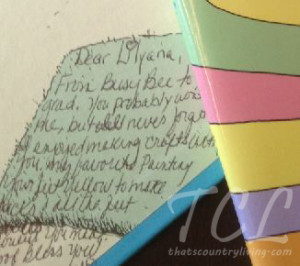 Dear Lilyana,
From Busy Bee to
grad. You probably won't
me, but I will never forget
enjoyed making crafts with
you. My favourite Painting
your feet yellow to make
all the feet
Bless you!
TCL
thatscountryliving.com